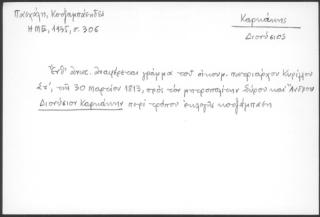 Πασχάλη, Κοτζαμπάσηδες
ΗΜΕ, 1935, σ. 306
Καρκάκης
Διονύσιος
Ἔνθ' ἀνωτ. ἀναφέρεται γράμμα τοῦ οἰκουμ. πατριάρχου Κυρίλλου
Στ', τῆς 30 μαρτίου 1813, πρὸς τὸν μητροπολίτην Σύρου καὶ Ἄνδρου
Διονύσιον Καρκάκην περὶ τρόπου ἐκλογῆς κοτζάμπαση